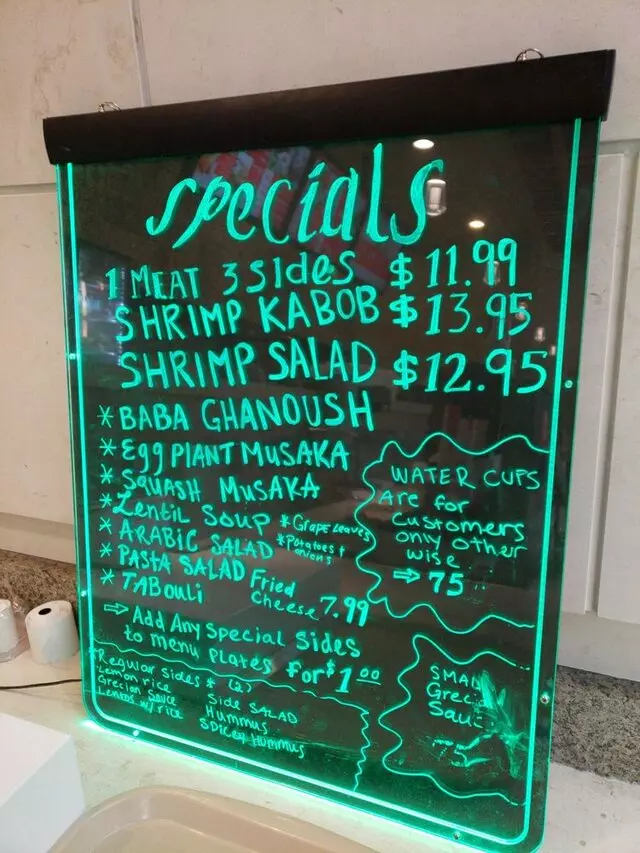 Specials
1 MEAT 3 Sides $11.99
SHRIMP KABOB $13.95
SHRIMP SALAD $12.95
* BABA GHANOUSH
* Egg PLANT MUSAKA
* SQUASH MUSAKA
* Lentil Soup
* Grape leaves
* ARABIC SALAD
* Potatoes +
onions
* PASTA SALAD
* TABouli
Fried
Cheese 7.99
⇒ Add Any Special Sides
to menu plates for $1.00
WATER CUPS
Are for
Customers
only other
wise
⇒ 75
* Regular Sides * (2)
Lemon rice
Grecian Sauce
Lentils w/ rice
Side SALAD
Hummus
Spicey Hummus
SMALL
Grecian
Sauce